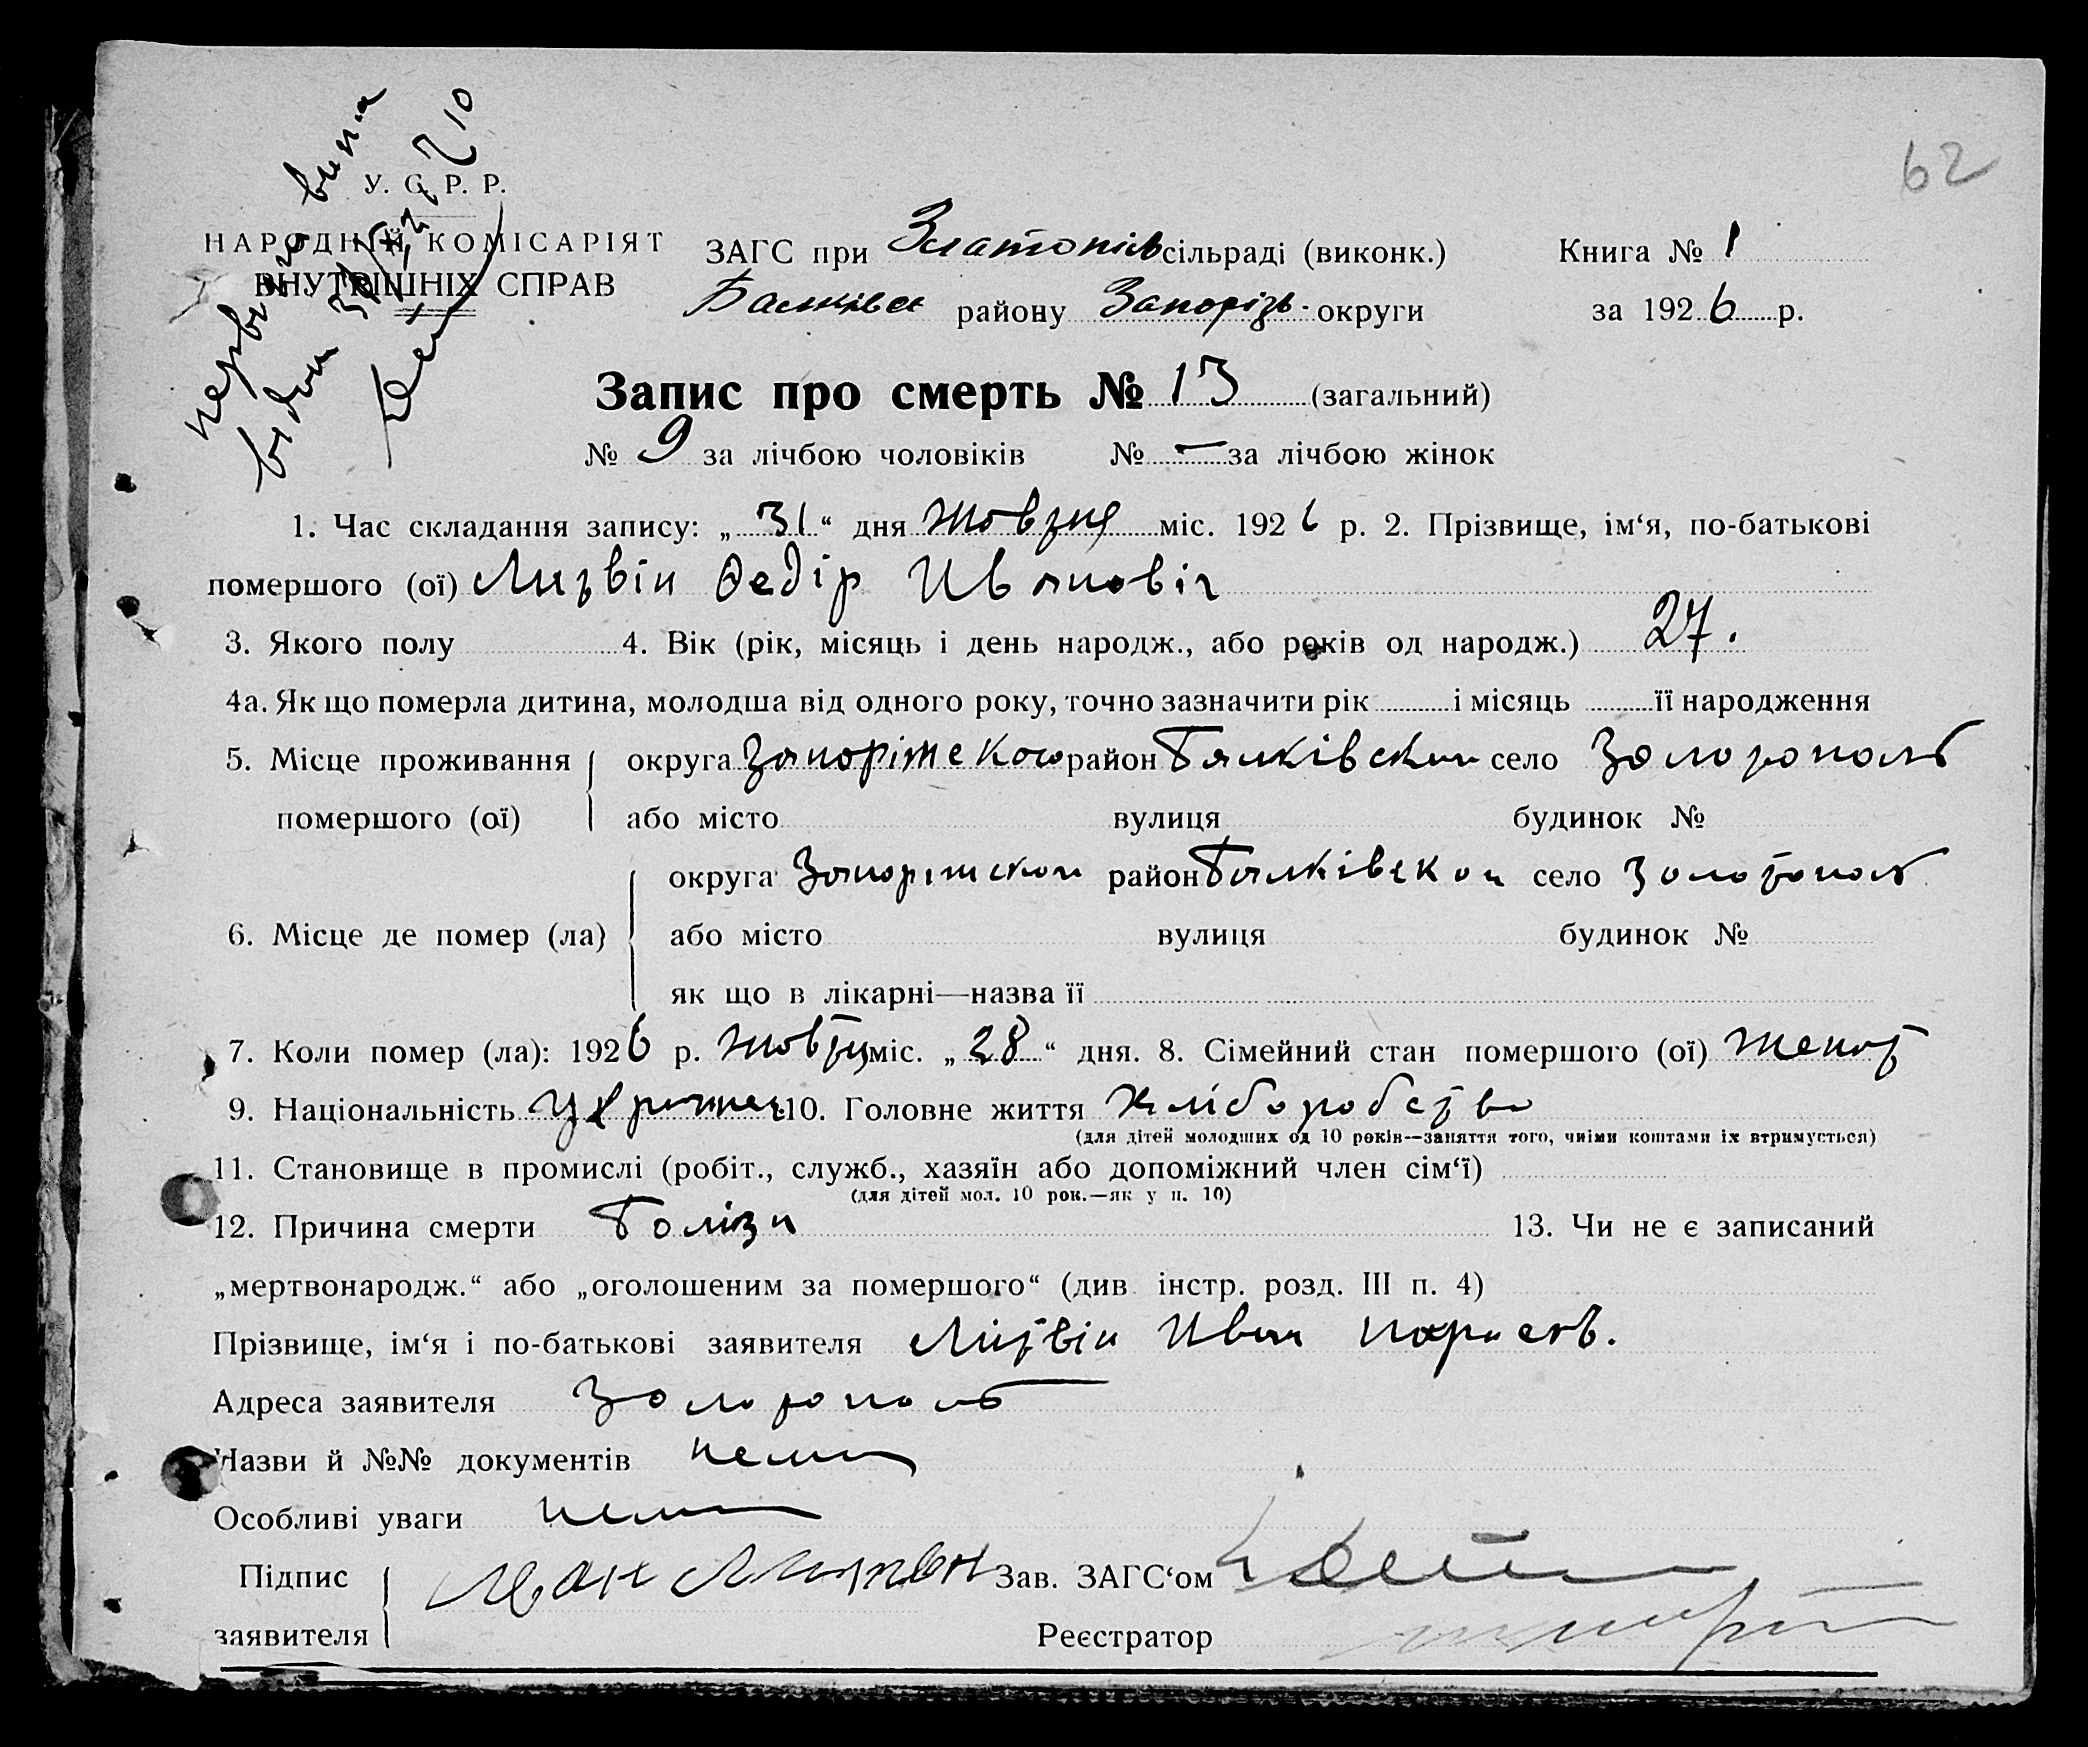 62
У. С. Р. Р.
НАРОДНІЙ КОМІСАРІЯТ
ВНУТРІШНІХ СПРАВ
ЗАГС при Златопіль сільраді (виконк.) Книга № 1
Балківск району Запорізь. округи за 1926 р.
Запис про смерть № 13 (загальний)
№ 9 за лічбою чоловіків № — за лічбою жінок
1. Час складання запису: „31“ дня Жовтня міс. 1926 р. 2. Прізвище, ім‘я, по-батькові
помершого (ої) Литвін Федір Івановіч
3. Якого полу 4. Вік (рік, місяць і день народж., або років од народж.) 27.
4а. Як що померла дитина, молодша від одного року, точно зазначити рік і місяць її народження
5. Місце проживання округа Запоріжского район Балківскии село Золотополь
помершого (ої) або місто вулиця будинок №
округа Запоріжскои район Балківскои село Золотополь
6. Місце де помер (ла) або місто вулиця будинок №
як що в лікарні—назва її
7. Коли помер (ла): 1926 р. Жовтн міс. „28“ дня. 8. Сімейний стан помершого (ої) женат
9. Національність Украинец 10. Головне життя Хліборобство
(для дітей молодших од 10 років—заняття того, чиїми коштами їх втримується)
11. Становище в промислі (робіт., служб., хазяїн або допоміжний член сім‘ї)
(для дітей мол. 10 рок.—як у п. 10)
12. Причина смерти Болізн 13. Чи не є записаний
„мертвонародж.“ або „оголошеним за помершого“ (див. інстр. розд. III п. 4)
Прізвище, ім‘я і по-батькові заявителя Литвін Иван
Адреса заявителя Золотополь
Назви й №№ документів нема
Особливі уваги нема
Підпис Иван Литвин Зав. ЗАГС‘ом
заявителя Реєстратор